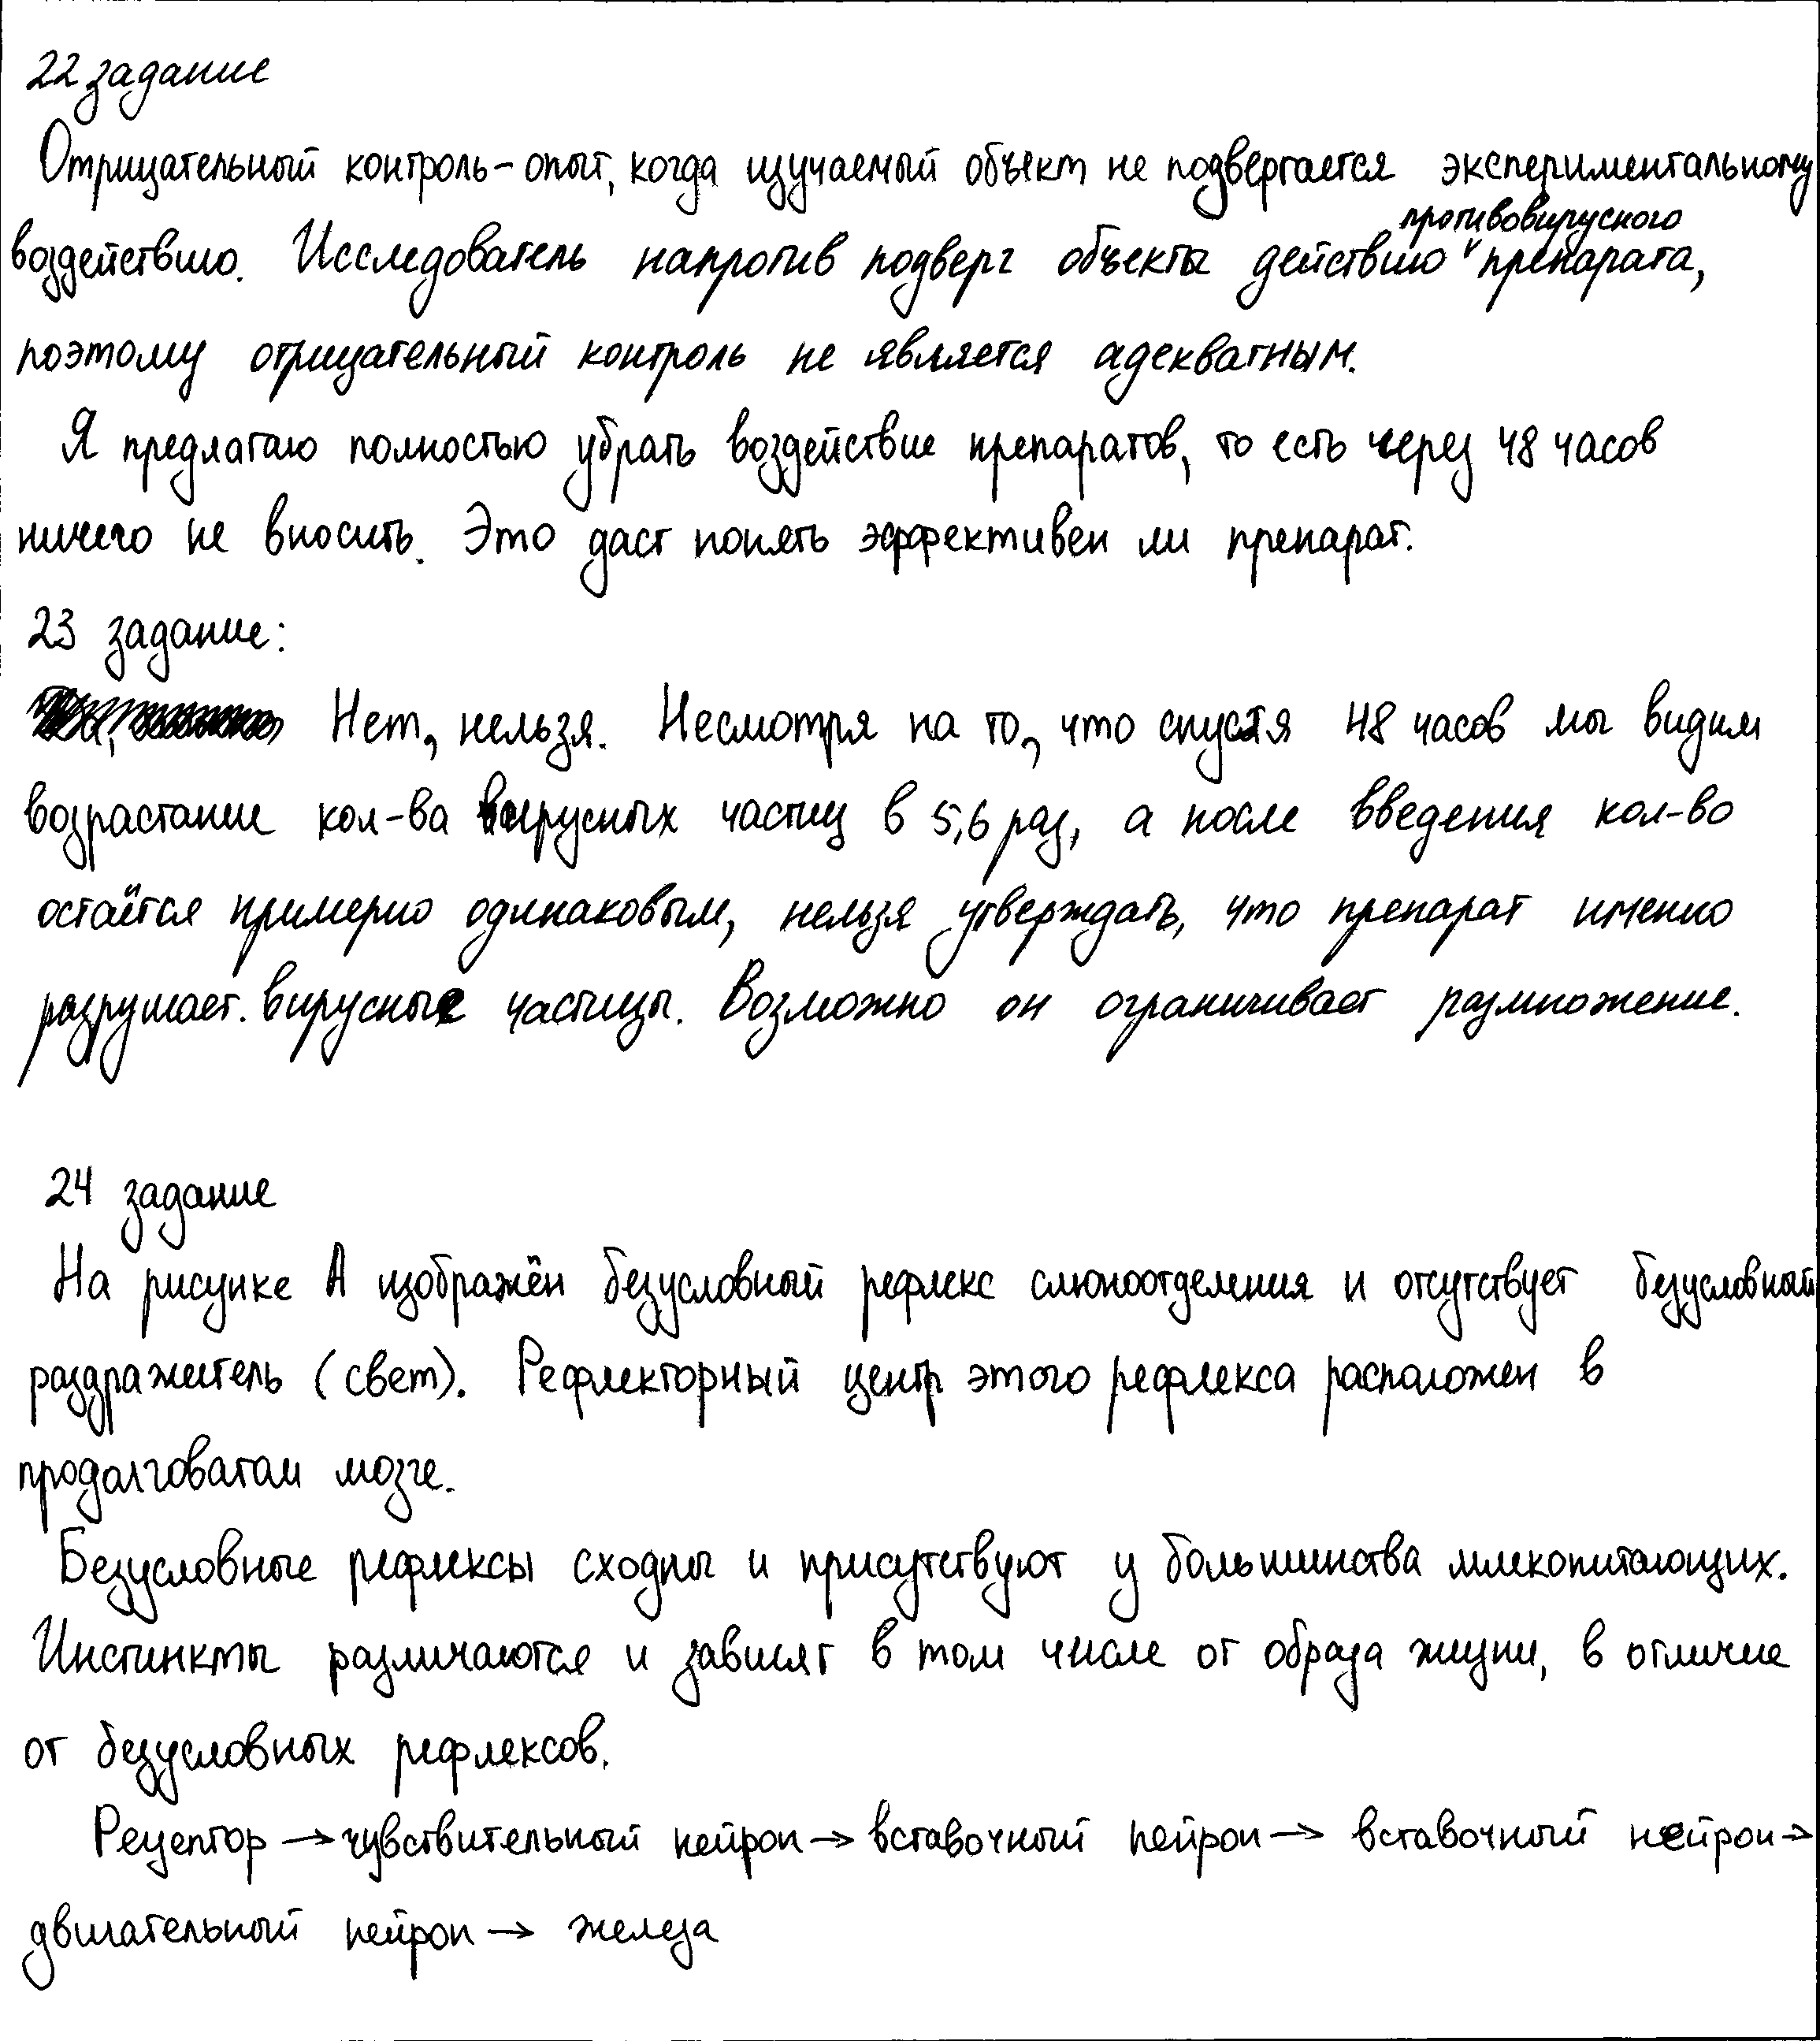 22 задание
Отрицательный контроль - опыт, когда изучаемый объект не подвергается экспериментальному
воздействию. Исследователь напротив подверг объекты действию противовирусного препарата,
поэтому отрицательный контроль не является адекватным.
Я предлагаю полностью убрать воздействие препаратов, то есть через 48 часов
ничего не вносить. Это даст понять эффективен ли препарат.
23 задание:
Нет, нельзя. Несмотря на то, что спустя 48 часов мы видим
возрастание кол-ва вирусных частиц в 5,6 раз, а после введения кол-во
остаётся примерно одинаковым, нельзя утверждать, что препарат именно
разрушает вирусные частицы. Возможно он ограничивает размножение.
24 задание
На рисунке А изображён безусловный рефлекс слюноотделения и отсутствует безусловный
раздражитель (свет). Рефлекторный центр этого рефлекса расположен в
продолговатом мозге.
Безусловные рефлексы сходны и присутствуют у большинства млекопитающих.
Инстинкты различаются и зависят в том числе от образа жизни, в отличие
от безусловных рефлексов.
Рецептор → чувствительный нейрон → вставочный нейрон → вставочный нейрон →
двигательный нейрон → железа